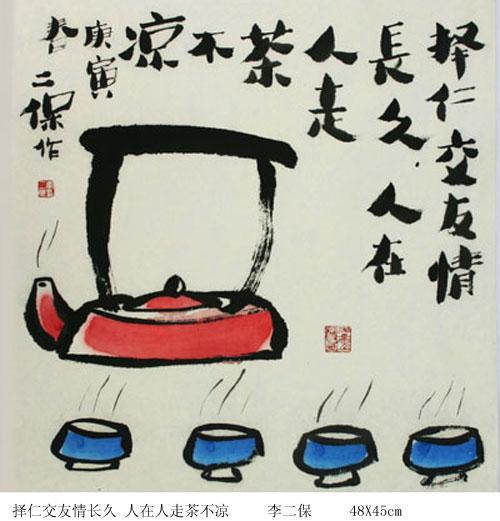 择仁交友情
長久,人在
人走
茶
不
凉
庚寅
春二保作
择仁交友情长久 人在人走茶不凉 李二保 48X45cm